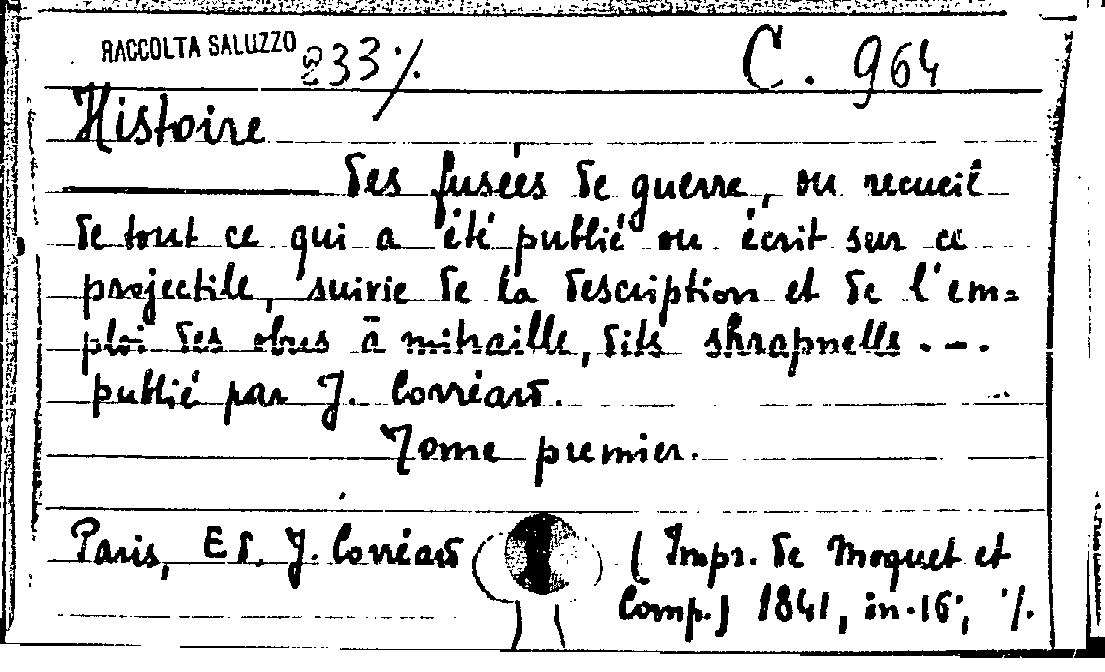 RACCOLTA SALUZZO 233 ·/. C. 964
Histoire
des fusées de guerre, ou recueil
de tout ce qui a été publié ou écrit sur ce
projectile, suivie de la description et de l'em=
ploi des obus à mitraille, dits shrapnelle . – .
publié par J. Corréard.
Tome premier.
Paris, Ed. J. Corréard ( Impr. de Moquet et
Comp.) 1841, in-16°, ·/.